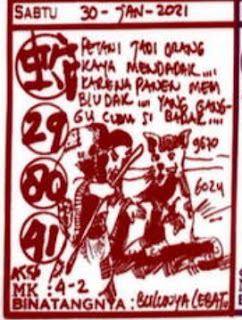 SABTU 30-JAN-2021
PETANI JADI ORANG
KAYA MENDADAK ....
KARENA PANEN MEM
BLUDAK .... YANG GANG-
GU CUMA SI BADAK ....
29
80
91
9670
6024
MK : 4-2
BINATANGNYA : BULUNYA LEBAT.